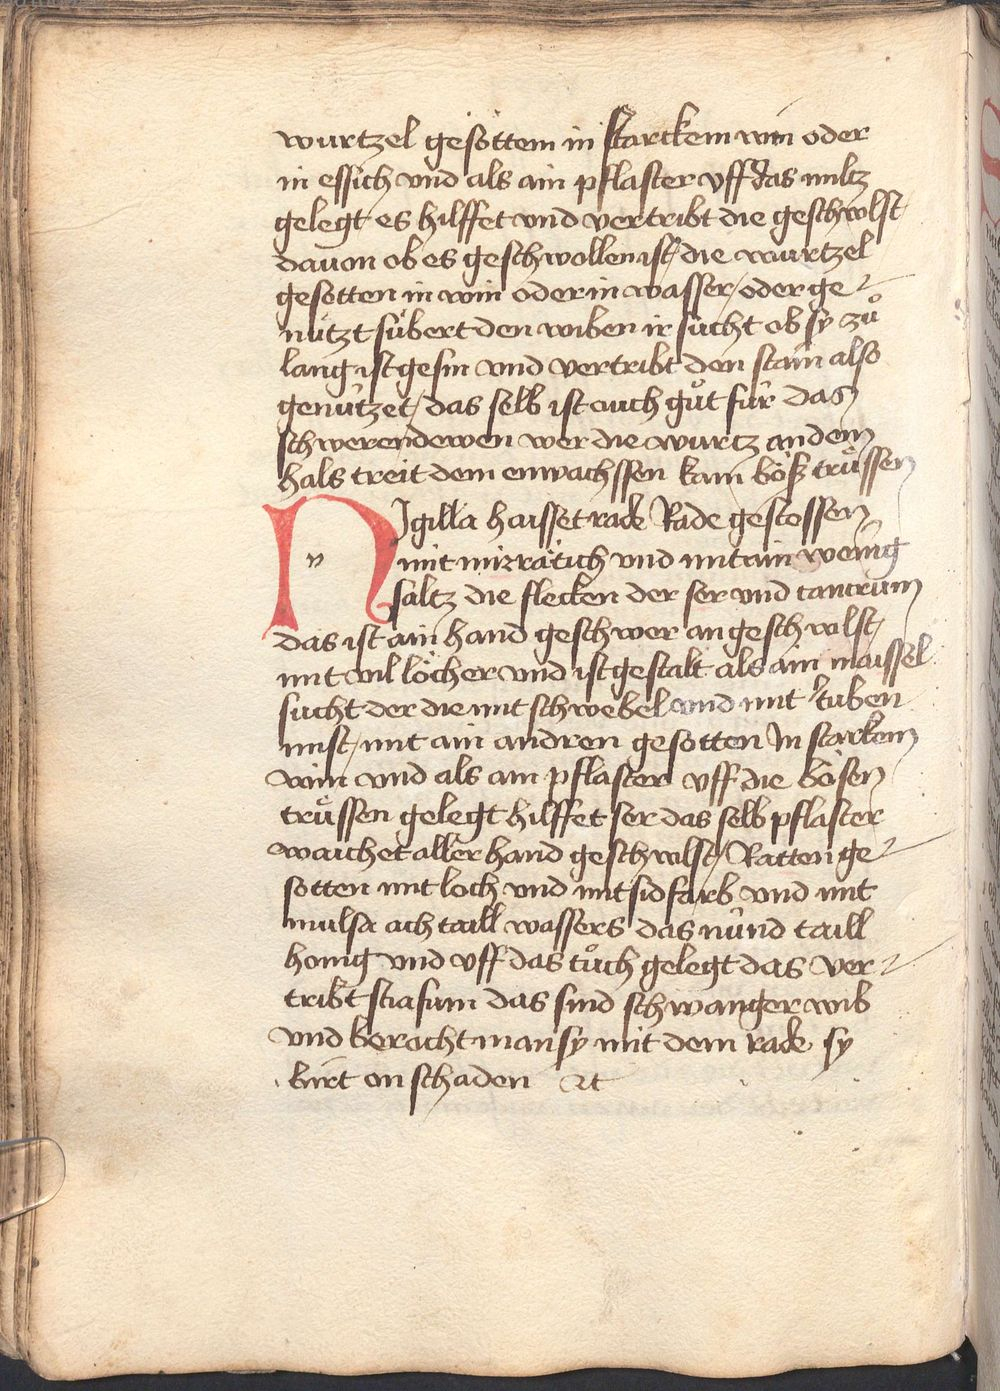 wurtzel gesottem in starckem win oder
in essich vnd als ain pflaster vff das miltz
gelegt es hilffet vnd vertribt die geschwlst
dauon ob es geschwollen ist die wurtzel
gesotten in win oder in wasser / oder ge
nützt sübert den wiben ir sücht ob sy zů
lang ist gesin vnd vertribt den stain also
genützet / das selb ist ouch gůt für das
schweren dewen wer die wurtz an dem
hals treit dem enwachssen kain böß trüssen
NIgilla haisset rade Rade gestossen
n
mit mirrätich vnd mit ain wenig
saltz die flecken der ser vnd cancrum
das ist ain hand geschwer an geschwlst
mit vil löcher vnd ist gestalt als ain maissel
sucht der die mit schwebel vnd mit tuben
mist / mit ain andren gesotten In starkem
win vnd als ain pflaster vff die bösen
trüssen gelegt hilffet ser das selb pflaster
waichet aller hand geschwlst / Ratten ge
sotten mit loch vnd mit sidfarb vnd mit
mulsa ach taill wassers das nünd taill
honig vnd vff das tůch gelegt das ver
tribt sciasum das sind schwanger wib
vnd beracht man sy mit dem rade sy
birt on schaden